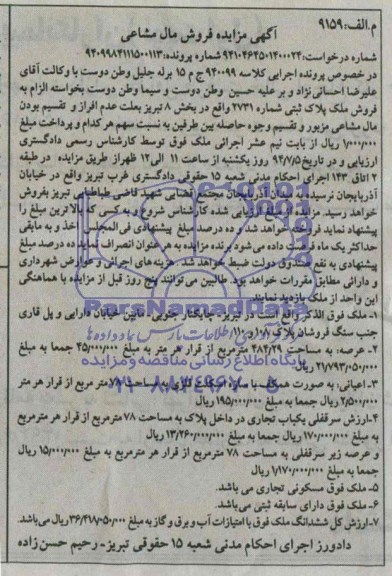 م.الف:۹۱۵۹
آگهی مزایده فروش مال مشاعی
شماره درخواست:۹۴۱۰۴۶۴۵۰۱۴۰۰۰۲۴ شماره پرونده:۹۴۰۹۹۸۴۱۱۱۵۰۰۱۱۳
در خصوص پرونده اجرایی کلاسه ۹۴۰۰۹۹ ج م ۱۵ برله جلیل وطن دوست با وکالت آقای
علیرضا احسانی نژاد و بر علیه حسین وطن دوست و سیما وطن دوست بخواسته الزام به
فروش ملک پلاک ثبتی شماره ۲۷۳۱ واقع در بخش ۸ تبریز بعلت عدم افراز و تقسیم بودن
مال مشاعی مزبور و تقسیم وجوه حاصله بین طرفین به نسبت سهم هر کدام و پرداخت مبلغ
۱/۰۰۰/۰۰۰ ریال از بابت نیم عشر اجرائی ملک فوق توسط کارشناس رسمی دادگستری
ارزیابی و در تاریخ ۹۴/۷/۵ روز یکشنبه از ساعت ۱۱ الی ۱۲ ظهراز طریق مزایده در طبقه
۲ اتاق ۱۴۳ اجرای احکام مدنی شعبه ۱۵ حقوقی دادگستری غرب تبریز واقع در خیابان
آذربایجان نرسیده به میدان آذربایجان مجتمع قضایی شهید قاضی طباطبایی تبریز بفروش
خواهد رسید. مزایده از مبلغ ارزیابی شده کارشناس شروع و به کسی که بالاترین مبلغ را
پیشنهاد نماید فروخته خواهد شد و ده درصد مبلغ پیشنهادی فی المجلس اخذ و به مابقی
حداکثر یک ماه فرصت داده می شود برنده مزایده به هر عنوان انصراف نماید ده درصد مبلغ
پیشنهادی به نفع صندوق دولت ضبط خواهد شد. هزینه های اجرائی و عوارض شهرداری
و دارائی مطابق مقررات خواهد بود. طالبین می توانند پنج روز قبل از مزایده با هماهنگی
این واحد از ملک بازدید نمایند
۱-ملک فوق الذکر واقع است در تبریز- چایکنار جنوبی- مابین خیابان دارایی و پل قاری
جنب سنگ فروشان پلاک
۲- عرصه: به مساحت ۴۸۴/۲۹ مترمربع از قرار هر متر به مبلغ ۴۵/۰۰۰/۰۰۰ جمعا به مبلغ
۲۱/۷۹۳/۰۵۰/۰۰۰ ریال
۳-اعیانی: به صورت همکف با سازه طاق گازی به مساحت ۷۸ مترمربع از قرار هر متر
۲/۵۰۰/۰۰۰ ریال جمعا به مبلغ ۱۹۵/۰۰۰/۰۰۰ ریال
۴-ارزش سرقفلی یکباب تجاری در داخل پلاک به مساحت ۷۸ مترمربع از قرار هر مترمربع
به مبلغ ۱۷۰/۰۰۰/۰۰۰ ریال جمعا به مبلغ ۱۳/۲۶۰/۰۰۰/۰۰۰ ریال
و عرصه زیر سرقفلی به مساحت ۷۸ مترمربع از قرار هر مترمربع به مبلغ ۱۵/۰۰۰/۰۰۰ ریال
جمعا به مبلغ ۱/۱۷۰/۰۰۰/۰۰۰ ریال
۵-ملک فوق مسکونی تجاری می باشد.
۶-ملک فوق دارای سابقه ثبتی می باشد.
۷-ارزش کل ششدانگ ملک فوق با امتیازات آب و برق و گاز به مبلغ ۳۶/۴۱۸/۰۵۰/۰۰۰ ریال می باشد.
دادورز اجرای احکام مدنی شعبه ۱۵ حقوقی تبریز- رحیم حسن زاده
ParsNamadData
پایگاه اطلاع رسانی مناقصه و مزایده